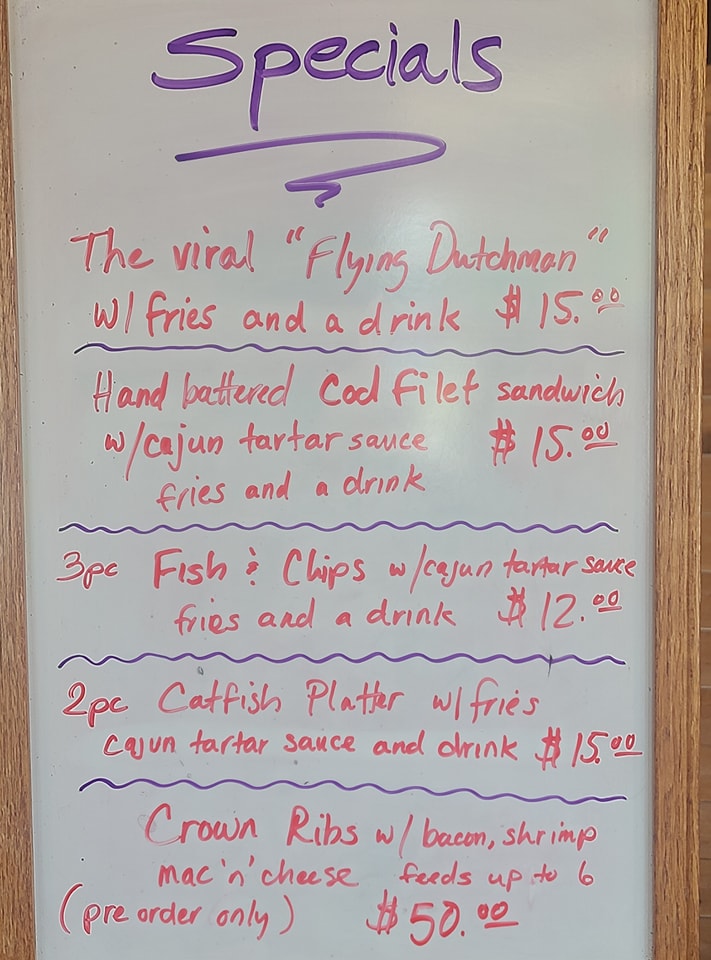 Specials
The viral "Flying Dutchman"
w/ fries and a drink $ 15.00
Hand battered Cod filet sandwich
w/cajun tartar sauce $ 15.00
fries and a drink
3pc Fish & Chips w/cajun tartar sauce
fries and a drink $ 12.00
2pc Catfish Platter w/fries
cajun tartar sauce and drink $ 15.00
Crown Ribs w/ bacon, shrimp
mac 'n' cheese feeds up to 6
(pre order only) $ 50.00